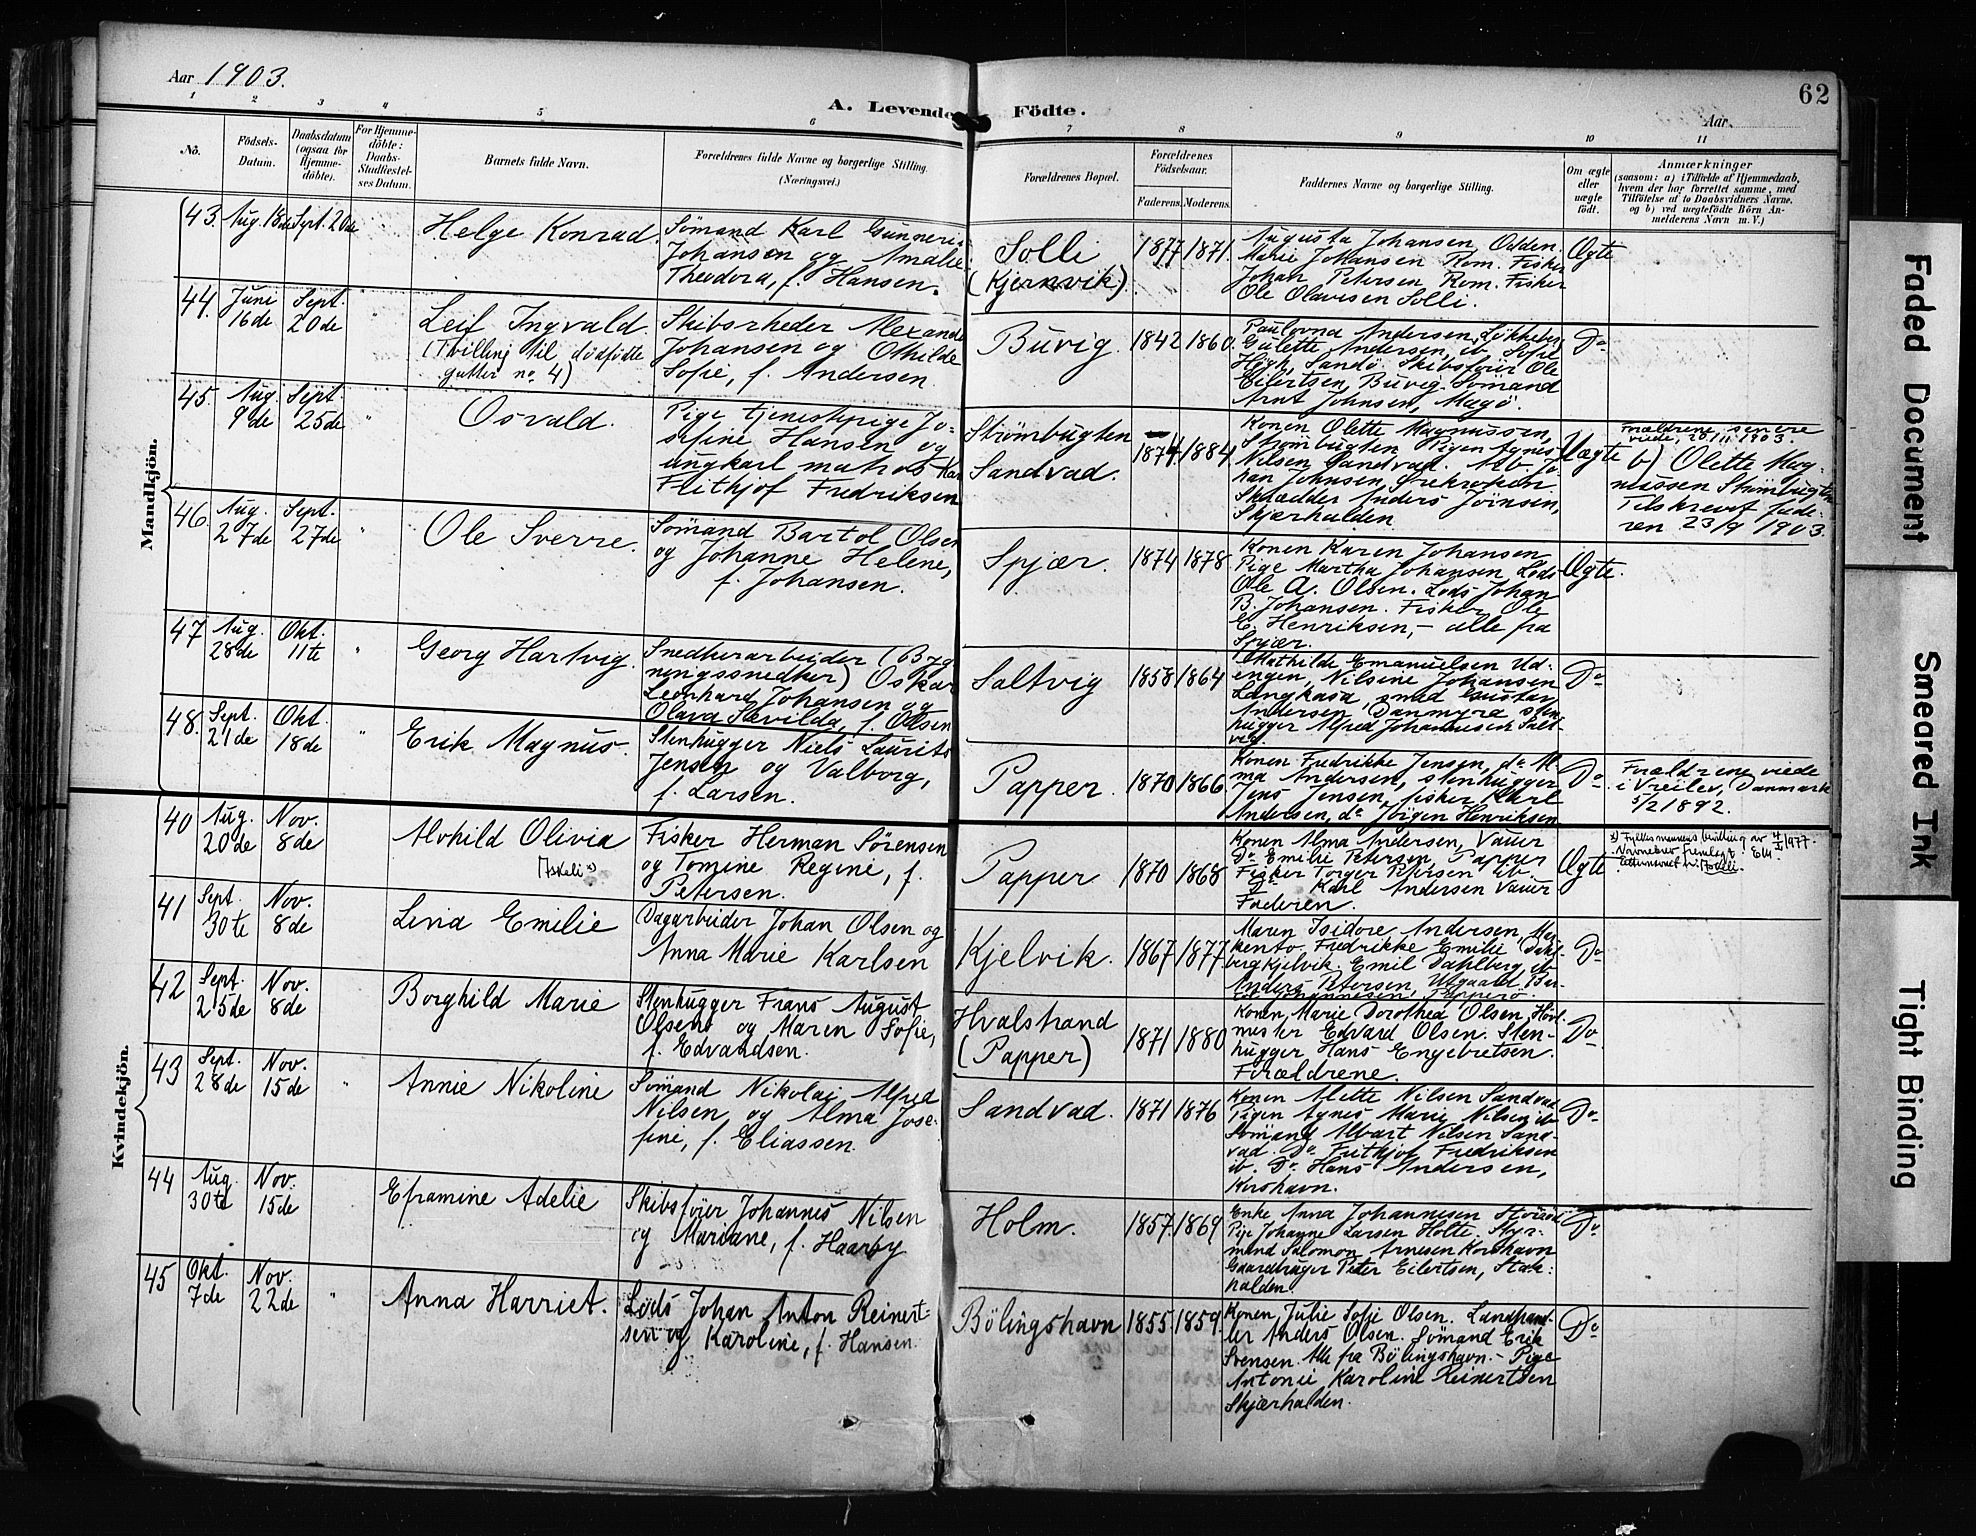 Aar 1903.
A. Levende Födte.
62
Aar
1 2 3 4 5 6 7 8 9 10 11
No.
Födsels-Datum.
Daabsdatum (ogsaa for Hjemme-döbte).
For Hjemme-döbte: Daabs-Stadfæstel-ses Datum.
Barnets fulde Navn.
Forældrenes fulde Navne og borgerlige Stilling.
(Næringsvei.)
Forældrenes Bopæl.
Forældrenes Födselsaar.
Faderens. Moderens.
Faddernes Navne og borgerlige Stilling.
Om ægte eller uægte födt.
Anmærkninger
(saasom: a) i Tilfælde af Hjemmedaab,
hvem der har forrettet samme, med
Tilföielse af to Daabsvidners Navne,
og b) ved uægtefödte Börn An-
melderens Navn m. V.)
Mandkjön.
43. Aug. 18de Sept. 20de
Helge Konrad.
Sømand Karl Gunneri-
Johansen og Amalie
Theodora, f. Hansen.
Solli
(Kjernvik)
1877 1871.
Augusta Johansen Odden.
Marie Johansen Rom. Fisker
Johan Petersen Rom. Fisker
Ole Olavesen Solli.
Ægte
44. Juni 16de Sept. 20de "
Leif Ingvald.
(Tvilling til dødfødte
gutter no. 4)
Skibsrheder Alexand
Johansen og Othilde
Sofie, f. Andersen
Buvig.
1842 1860.
Paulovna Andersen, Løkkeber
Gulette Andersen, ib. Sofie
Høgh, Sandø. Skibsfører Ole
Eilertsen, Buvig. Sømand
Arnt Johnsen, Magø.
Do
45. Aug. 9de Sept. 25de "
Osvald.
Pige tjenestepige Jo-
sefine Hansen og
ungkarl matros Kar
Frithjof Fredriksen
Strømbugten
Sandvad.
1874 1884
Konen Olette Magnussen,
Strømbugten. Pigen Agnes
Nilsen Sandvad. Arb. Jo
han Johnsen,
Skrædder Anders Jørnsen,
Skjærhalden.
Uægte
Forældrene senere
viede, 20/11 1903.
b) Olette Mag-
nussen Strømbugten
Tilskrevet fade-
ren 23/9 1903.
46. Aug. 27de Sept. 27de "
Ole Sverre.
Sømand Bartol Olsen
og Johanne Helene,
f. Johansen.
Spjær.
1874 1878
Konen Karen Johansen
Pige Martha Johansen Lods
Ole A. Olsen. Lods Johan
B. Johansen. Fisker Ole
E. Henriksen, - alle fra
Spjær.
Ægte.
47 Aug. 28de Okt. 11te "
Georg Hartvig.
Snedkerarbeider (Byg-
ningssnedker) Oskar
Leonhard Johansen og
Olava Sevilda, f. Olsen
Saltvig
1858 1864
Mathilde Emanuelsen Ud-
engen, Nilsine Johansen
Langkasa, smed Gustav
Andersen, Danmyre sten
hugger Alfred Johannesen Salt-
vig.
Do
48. Sept. 21de Okt. 18de "
Erik Magnus.
Stenhugger Niels Laurits
Jensen og Valborg,
f. Larsen.
Papper.
1870 1866
Konen Fredrikke Jensen, do Al
ma Andersen, stenhugger
Jens Jensen, fisker Karl
Andersen, do Jørgen Henriksen
Do
Forældrene viede
i Vreilev, Danmark
3/2 1892.
Kvindekjön.
40 Aug. 20de Nov. 8de
Alvhild Olivia
(Askeli x)
Fisker Herman Sørensen
og Tomine Regine, f.
Petersen.
Papper
1870 1868
Konen Alma Andersen, Vauer
Do Emilie Petersen, Papper
Fisker Torger Petersen ib.
Do Karl Andersen Vauer
Faderen.
Ægte
x) Fylkesmannens bevilling av 1977.
41 Sept. 30te Nov. 8de
Lina Emilie
Dagarbeider Johan Olsen og
Anna Marie Karlsen
Kjelvik.
1867 1877.
Maren Isidore Andersen,
Fredrikke Emilie Dahl-
berg Kjelvik. Emil Dahlberg, ib.
Anders Petersen, Utgaard
Johannesen Papperø.
Do
42 Sept. 25de Nov. 8de
Borghild Marie
Stenhugger Frans August
Olsen og Maren Sofie,
f. Edvardsen.
Hvalstrand
(Papper)
1871 1880
Konen Marie Dorothea Olsen, Hov-
mester Edvard Olsen. Sten-
hugger Hans Engebretsen.
Forældrene.
Do
43 Sept. 28de Nov. 15de "
Annie Nikoline
Sømand Nikolai Alfred
Nilsen og Alma Jose-
fine, f. Eliassen.
Sandvad.
1871 1876
Konen Alette Nilsen Sandvad
Pigen Agnes Marie Nilsen ib
Sømand Albart Nilsen Sand-
vad. Do Frithjof Fredriksen
ib. Do Hans Andersen,
Korshavn.
Do
44 Aug. 30te Nov. 15de
Eframine Adelie
Skibsfører Johannes Nilsen
og Mariane, f. Haarby
Holm.
1857. 1869
Enke Anna Johannesen
Pige Johanne Larsen Holte. Styr-
mand Salomon Arnesen Korshavn
Gaardbruger Peter Eilertsen, Stok-
halden.
Do
45 Okt. 7de Nov. 22de "
Anna Harriet.
Lods Johan Anton Reinert-
sen og Karoline, f. Hansen.
Bølingshavn
1855. 1859.
Konen Julie Sofie Olsen. Landhand-
ler Anders Olsen. Sømand Erik
Svensen. Alle fra Bølingshavn. - Pige
Antonie Karoline Reinertsen
Skjærhalden.
Do
Faded Document
Smeared Ink
Tight Binding